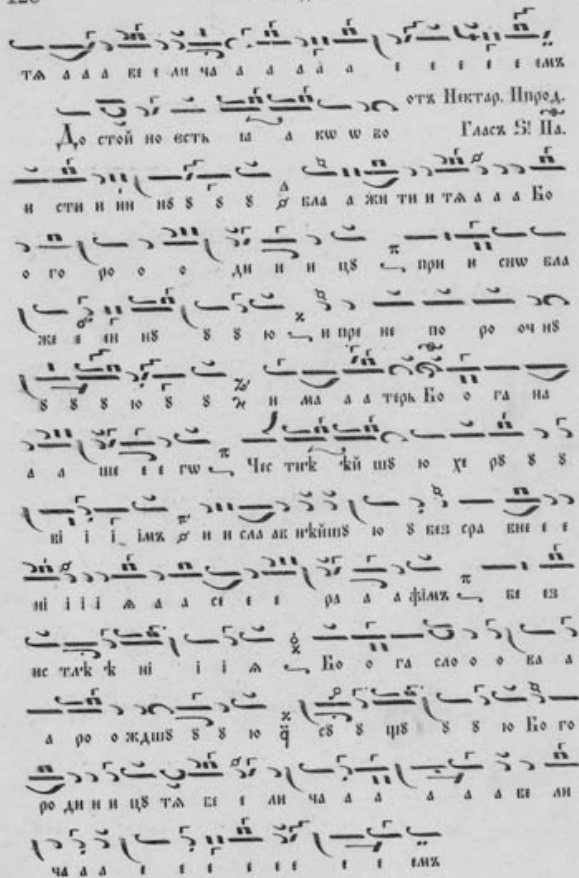 тѧ а а а ве е ли ча а а а а а е е е е е емъ
отъ Нектар. Ппрод.
До стой но есть ꙗ а кѡ ѡ во Гласъ Ѕ! Па.
и сти и ин нꙋ ꙋ ꙋ ꙋ бла а жи ти и тѧ а а а Бо
о го ро о о ди и и цꙋ при и снѡ бла
же е ен нꙋ ꙋ ꙋ ю и пре не по ро оч нꙋ
ꙋ ꙋ ꙋ ю ꙋ ꙋ и ма а а терь Бо о га на
а а ше е е гѡ Чес тнѣ ѣй шꙋ ю хе рꙋ ꙋ ꙋ
ві і і імъ и и сла ав нѣйшꙋ ю ꙋ без сра вне е е
ні і і і ѧ а а се е е ра а а фімъ бе ез
ис тлѣ ѣ ні і і ѧ Бо о га сло о о ва а
а ро о ждшꙋ ꙋ ꙋ ю сꙋ ꙋ щꙋ ꙋ ꙋ ю Бо го
ро ди и и цꙋ тѧ ве е ли ча а а а а а ве ли
ча а а е е е е е е е е емъ